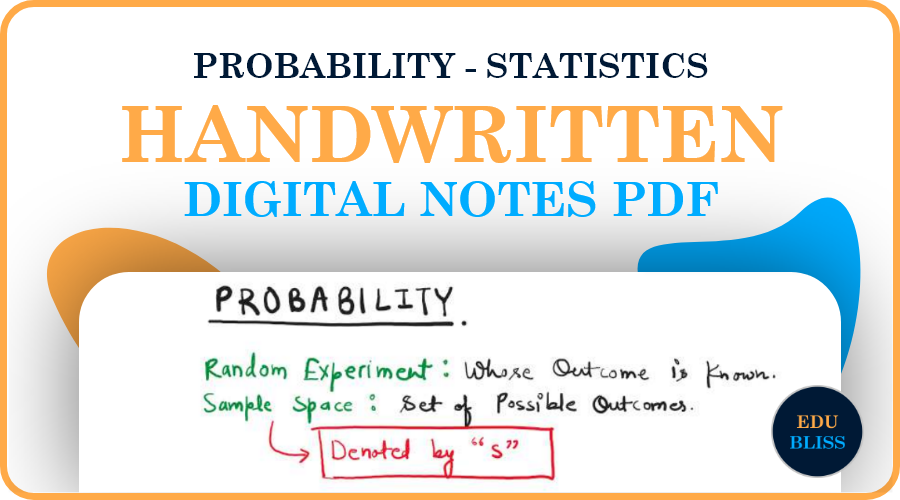 PROBABILITY - STATISTICS
HANDWRITTEN
DIGITAL NOTES PDF
PROBABILITY.
Random Experiment : Whose Outcome is known.
Sample Space : Set of Possible Outcomes.
Denoted by "s"
EDU
BLISS